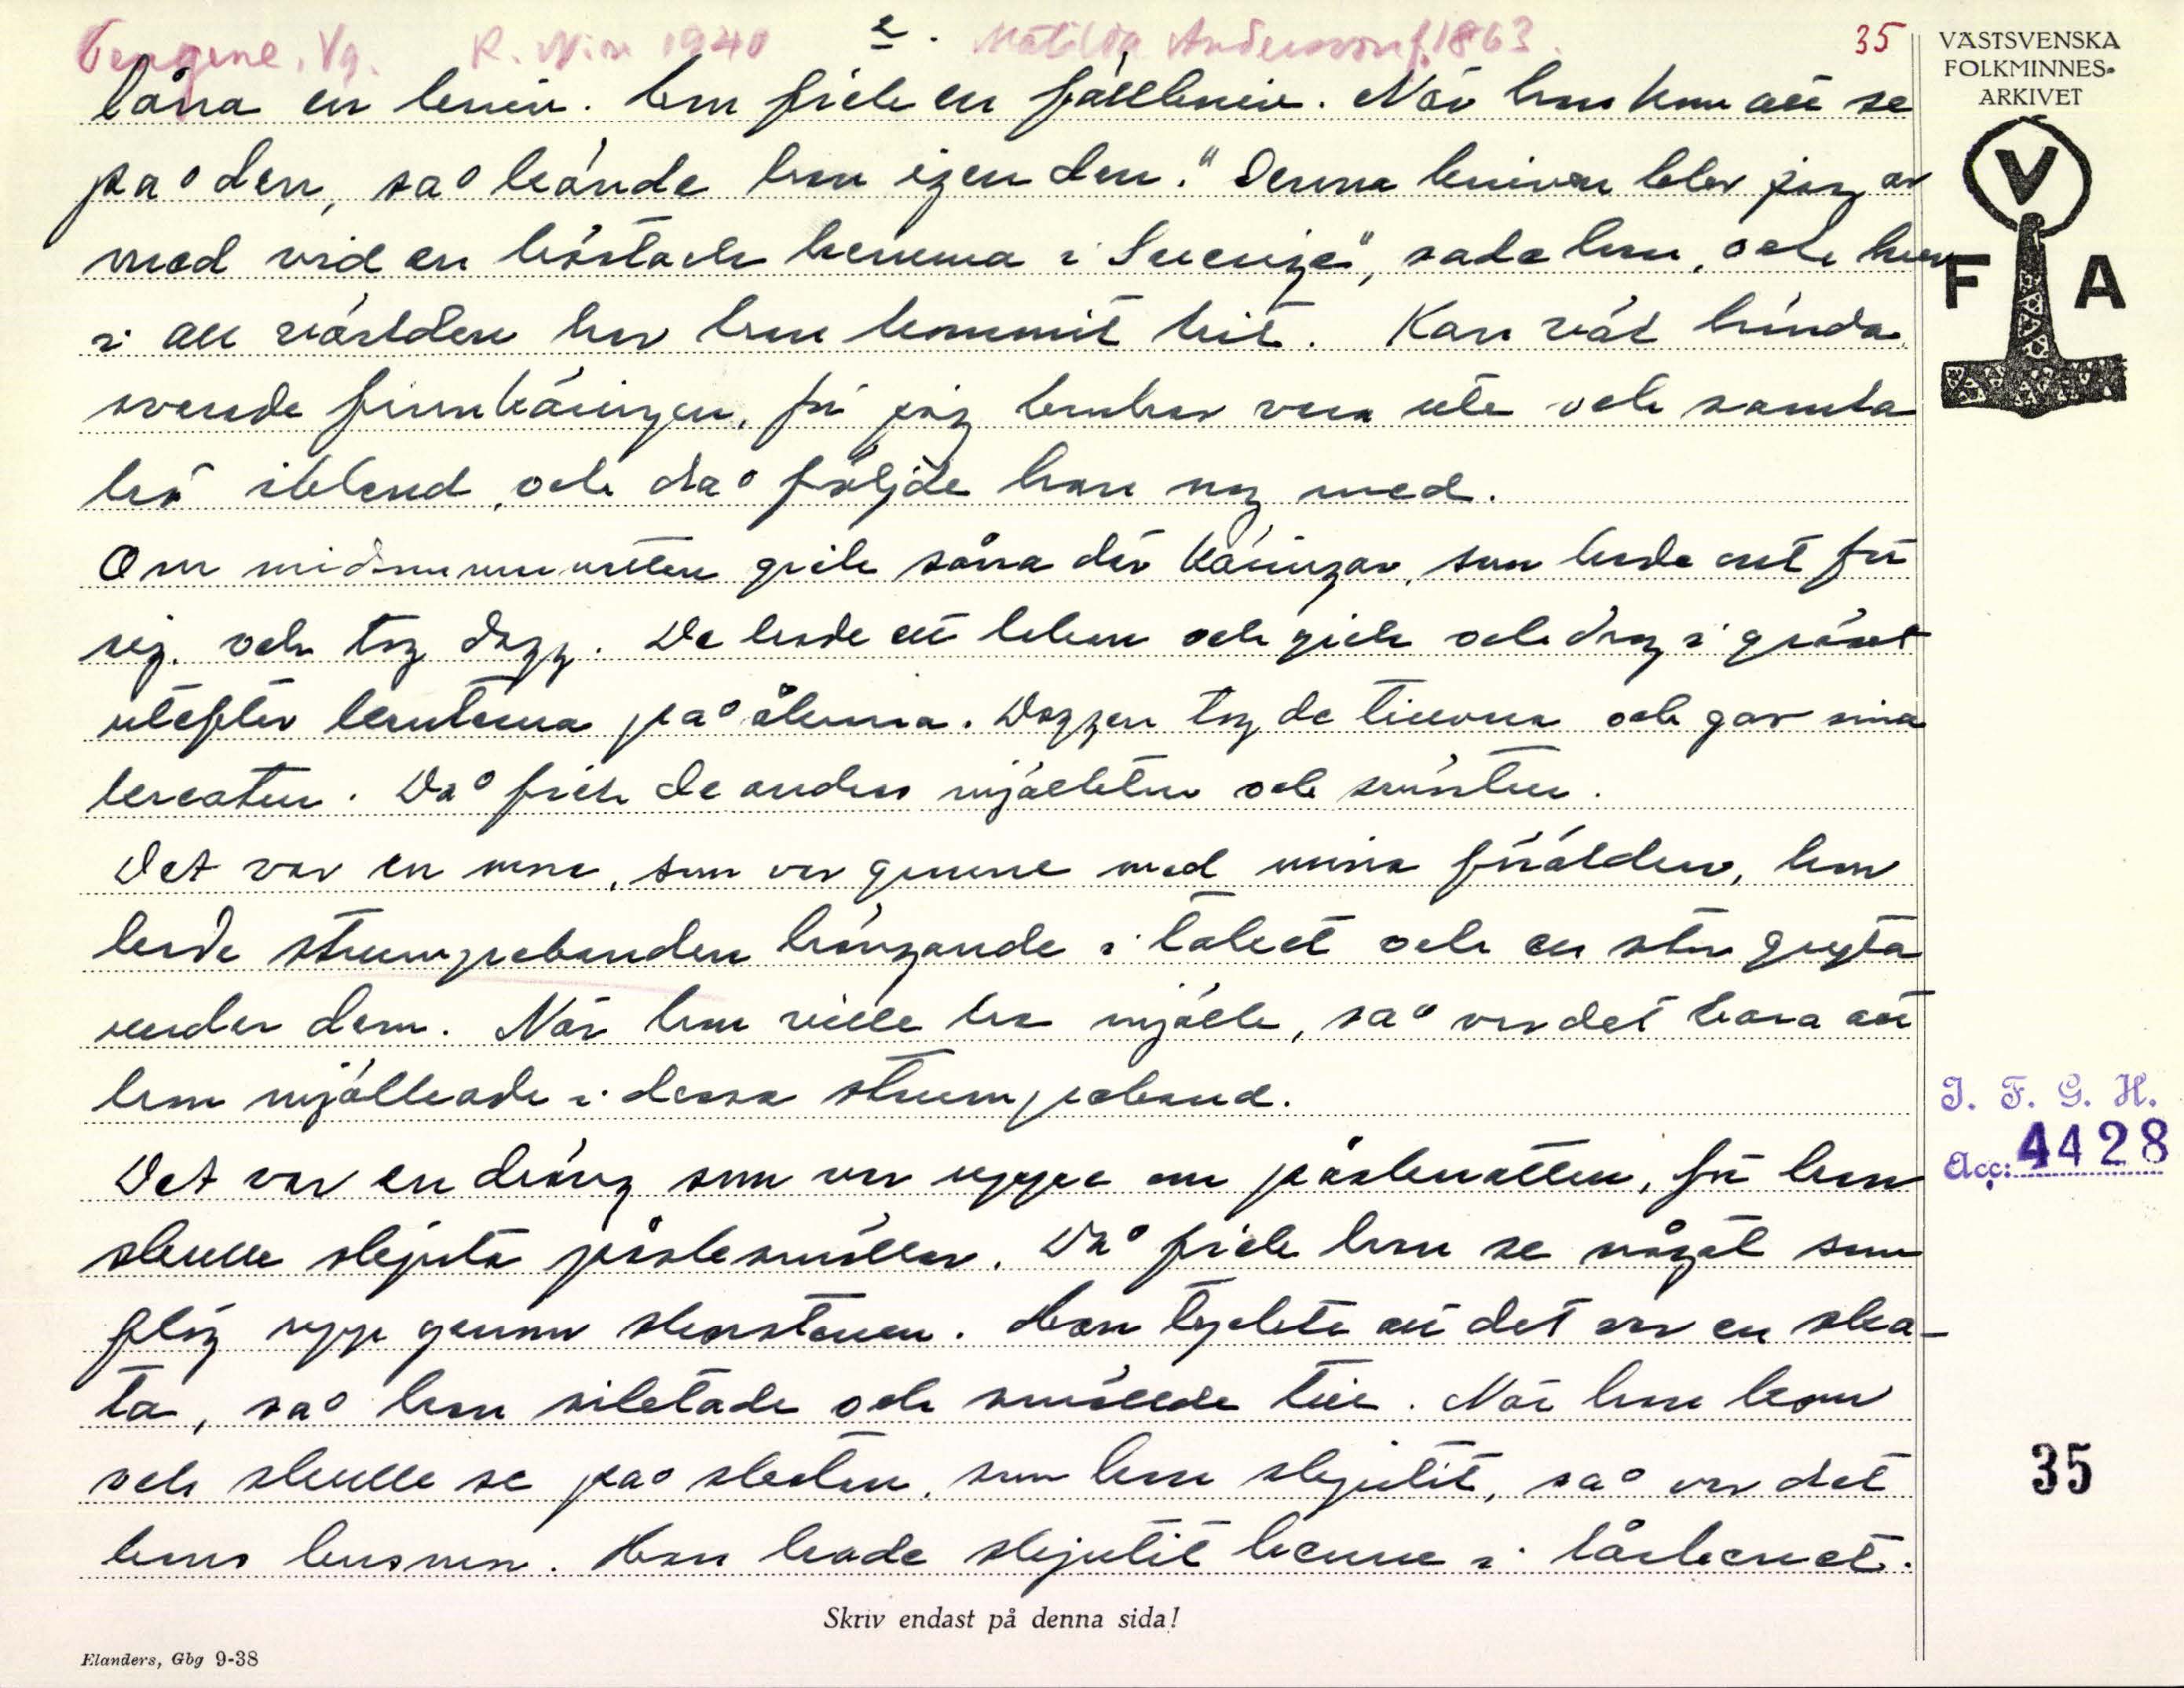 Tengene. Vg. R. Niln 1940 2. Matilda Andersson f. 1863. 35
låna en kniv. Han fick en fällkniv. När han kom att se
på den, så kände han igen den. "Denna kniven blev jag av
med vid en höstack hemma i Sverige", sade han, och hur
i all världen har han kommit hit. Kan väl hända
svarade finnkäringen, för jag brukar vara ute och samla
hö ibland, och då följde han nog med.
Om midsommarnatten gick såna där käringar, som hade ont för
sig. och tog dagg. De hade ett lakan och gick och drog i gräset
utefter kanterna på åkrarna. Daggen tog de tillvara och gav sina
kreatur. Då fick de andras mjölktur och smörtur.
Det var en mora, som var granne med mina föräldrar, hon
hade strumpebanden hängande i taket och en stor gryta
under dem. När hon ville ha mjölk, så var det bara att
hon mjölkade i dessa strumpeband.
Det var en dräng som var uppe om påsknatten, för han
skulle skjuta påsksmällar. Då fick han se något som
flög upp genom skorstenen. Han tyckte att det var en ska-
ta, så han siktade och smällde till. När han kom
och skulle se på skatan, som han skjutit, så var det
hans husmor. Han hade skjutit henne i lårbenet.
VÄSTSVENSKA
FOLKMINNES-
ARKIVET
V
F A
I. F. G. H.
Acc: 4428
35
Skriv endast på denna sida!
Elanders, Gbg 9-38